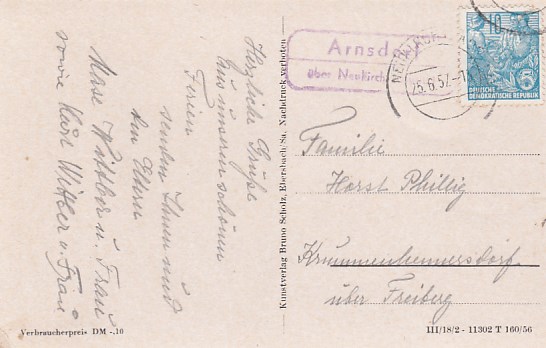 Herzliche Grüße
aus unserm schönen
Ferien
senden Ihnen und
den Eltern
u. Frau
sowie Karl u. Frau
Verbraucherpreis DM -.10
Kunstverlag Bruno Scholz, Ebersbach/Sa. Nachdruck verboten
Arnsdorf
über Neukirch
25.6.57
10
5
DEUTSCHE
DEMOKRATISCHE REPUBLIK
Familie
Horst Phillig
Krummenhennersdorf
über Freiberg
III/18/2 - 11302 T 160/56